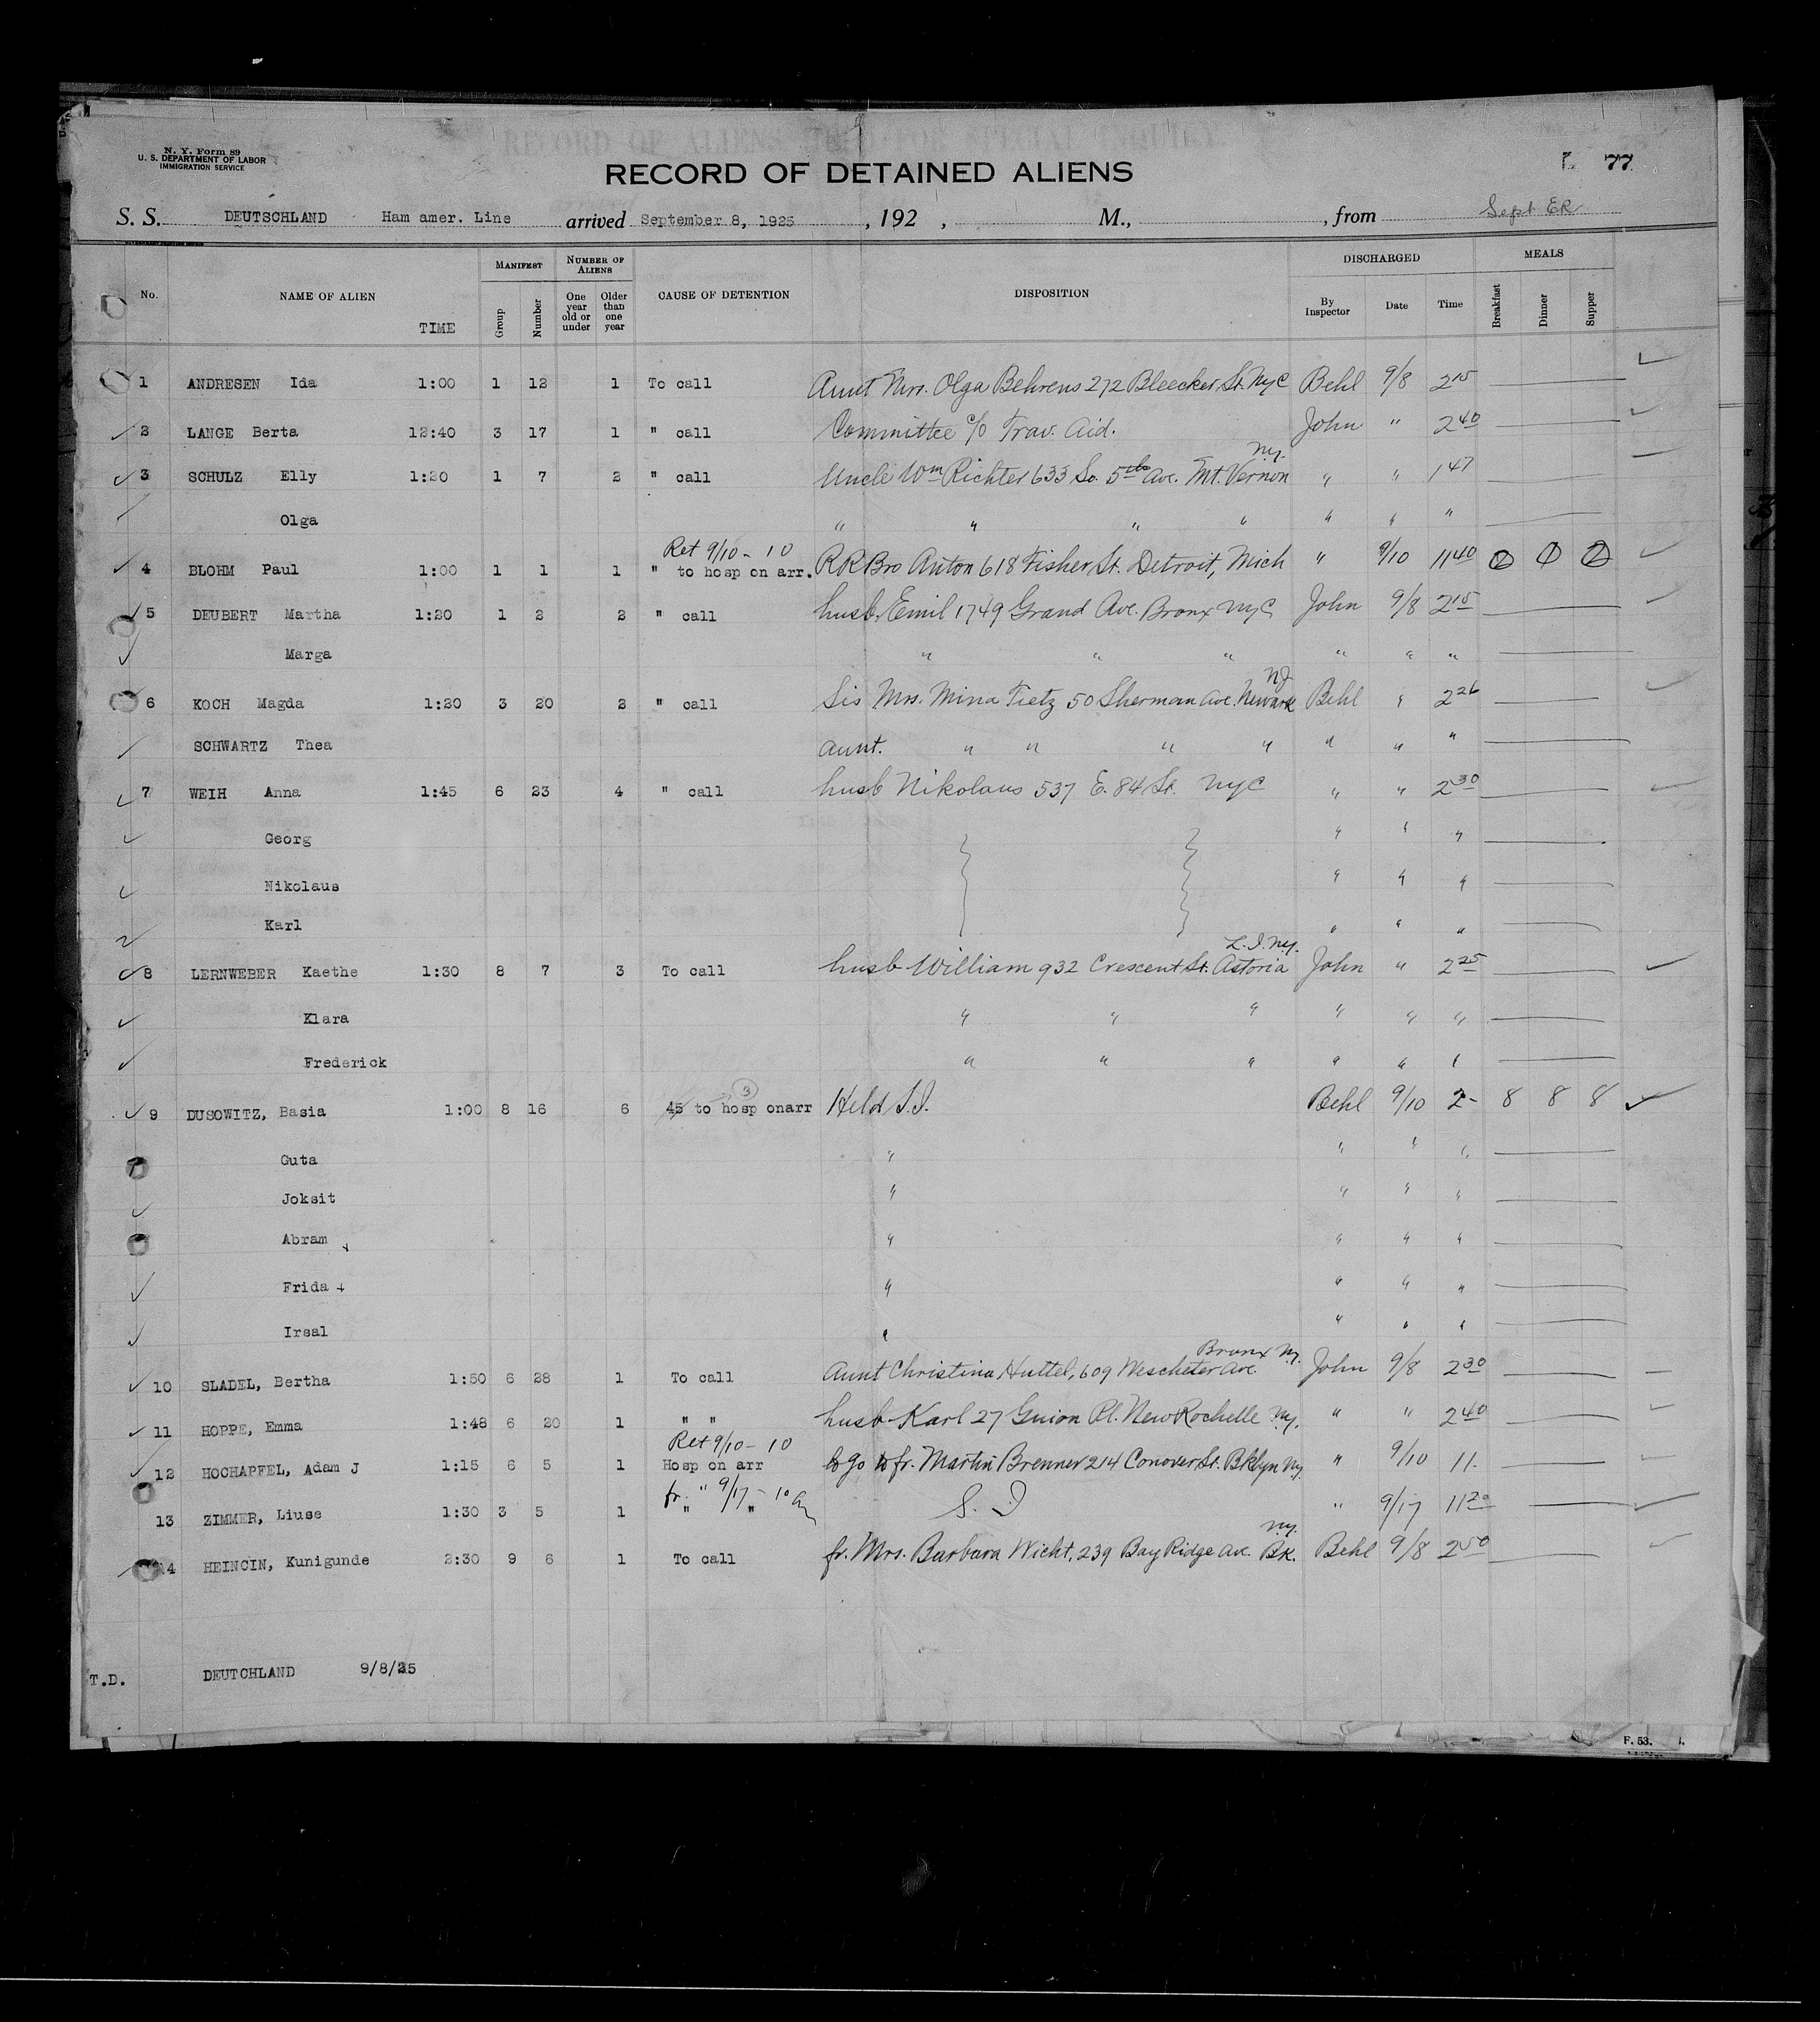 N. Y. Form 89
U. S. DEPARTMENT OF LABOR
IMMIGRATION SERVICE
77
RECORD OF DETAINED ALIENS
S. S. DEUTSCHLAND Ham amer. Line arrived September 8, 1925 , 192 , M., , from Sept ER
No. NAME OF ALIEN TIME MANIFEST Group Number NUMBER OF ALIENS One year old or under Older than one year CAUSE OF DETENTION DISPOSITION DISCHARGED By Inspector Date Time MEALS Breakfast Dinner Supper
1 ANDRESEN Ida 1:00 1 12 1 To call Aunt Mrs. Olga Behrens 272 Bleecker St. NYC Behl 9/8 2 15
2 LANGE Berta 12:40 3 17 1 " call Committee c/o Trav. Aid. John " 2 40
3 SCHULZ Elly 1:20 1 7 2 " call Uncle Wm Richter 633 So. 5th Ave. Mt. Vernon N.Y. " " 1 47
Olga " " " " " " "
Ret 9/10 - 10
4 BLOHM Paul 1:00 1 1 1 " to hosp on arr. RR Bro Anton 618 Fisher St. Detroit, Mich " 9/10 11 40 2 1 2
5 DEUBERT Martha 1:20 1 2 2 " call husb. Emil 1749 Grand Ave. Bronx NYC John 9/8 2 15
Marga " " " " " "
6 KOCH Magda 1:20 3 20 2 " call Sis Mrs. Mina Tietz 50 Sherman Ave. Newark NJ Behl " 2 26
SCHWARTZ Thea aunt. " " " " " " "
7 WEIH Anna 1:45 6 23 4 " call husb Nikolaus 537 E. 84 St. NYC " " 2 30
Georg " " "
Nikolaus " " "
Karl " " "
8 LERNWEBER Kaethe 1:30 8 7 3 To call husb William 932 Crescent St. Astoria L.I. N.Y. John " 2 25
Klara " " " " " "
Frederick " " " " " "
3
9 DUSOWITZ, Basia 1:00 8 16 6 45 to hosp onarr Held S.I. Behl 9/10 2- 8 8 8
Guta " " " "
Joksit " " " "
Abram " " " "
Frida " " " "
Irsal " " " "
10 SLADEL, Bertha 1:50 6 28 1 To call Aunt Christina Huttel, 609 Wescheter Ave. Bronx N.Y. John 9/8 2 30
11 HOPPE, Emma 1:48 6 20 1 " " husb Karl 27 Guion Pl. New Rochelle N.Y. " " 2 40
Ret 9/10 - 10
12 HOCHAPFEL, Adam J 1:15 6 5 1 Hosp on arr to go to fr. Martin Brenner 214 Conover St. Bklyn NY " 9/10 11.
9/17 - 10
13 ZIMMER, Liuse 1:30 3 5 1 " " S. I " 9/17 11 20
14 HEINCIN, Kunigunde 2:30 9 6 1 To call fr. Mrs. Barbara Wicht, 239 Bay Ridge Ave. Bk. N.Y. Behl 9/8 2 50
T.D. DEUTCHLAND 9/8/25
F. 53.